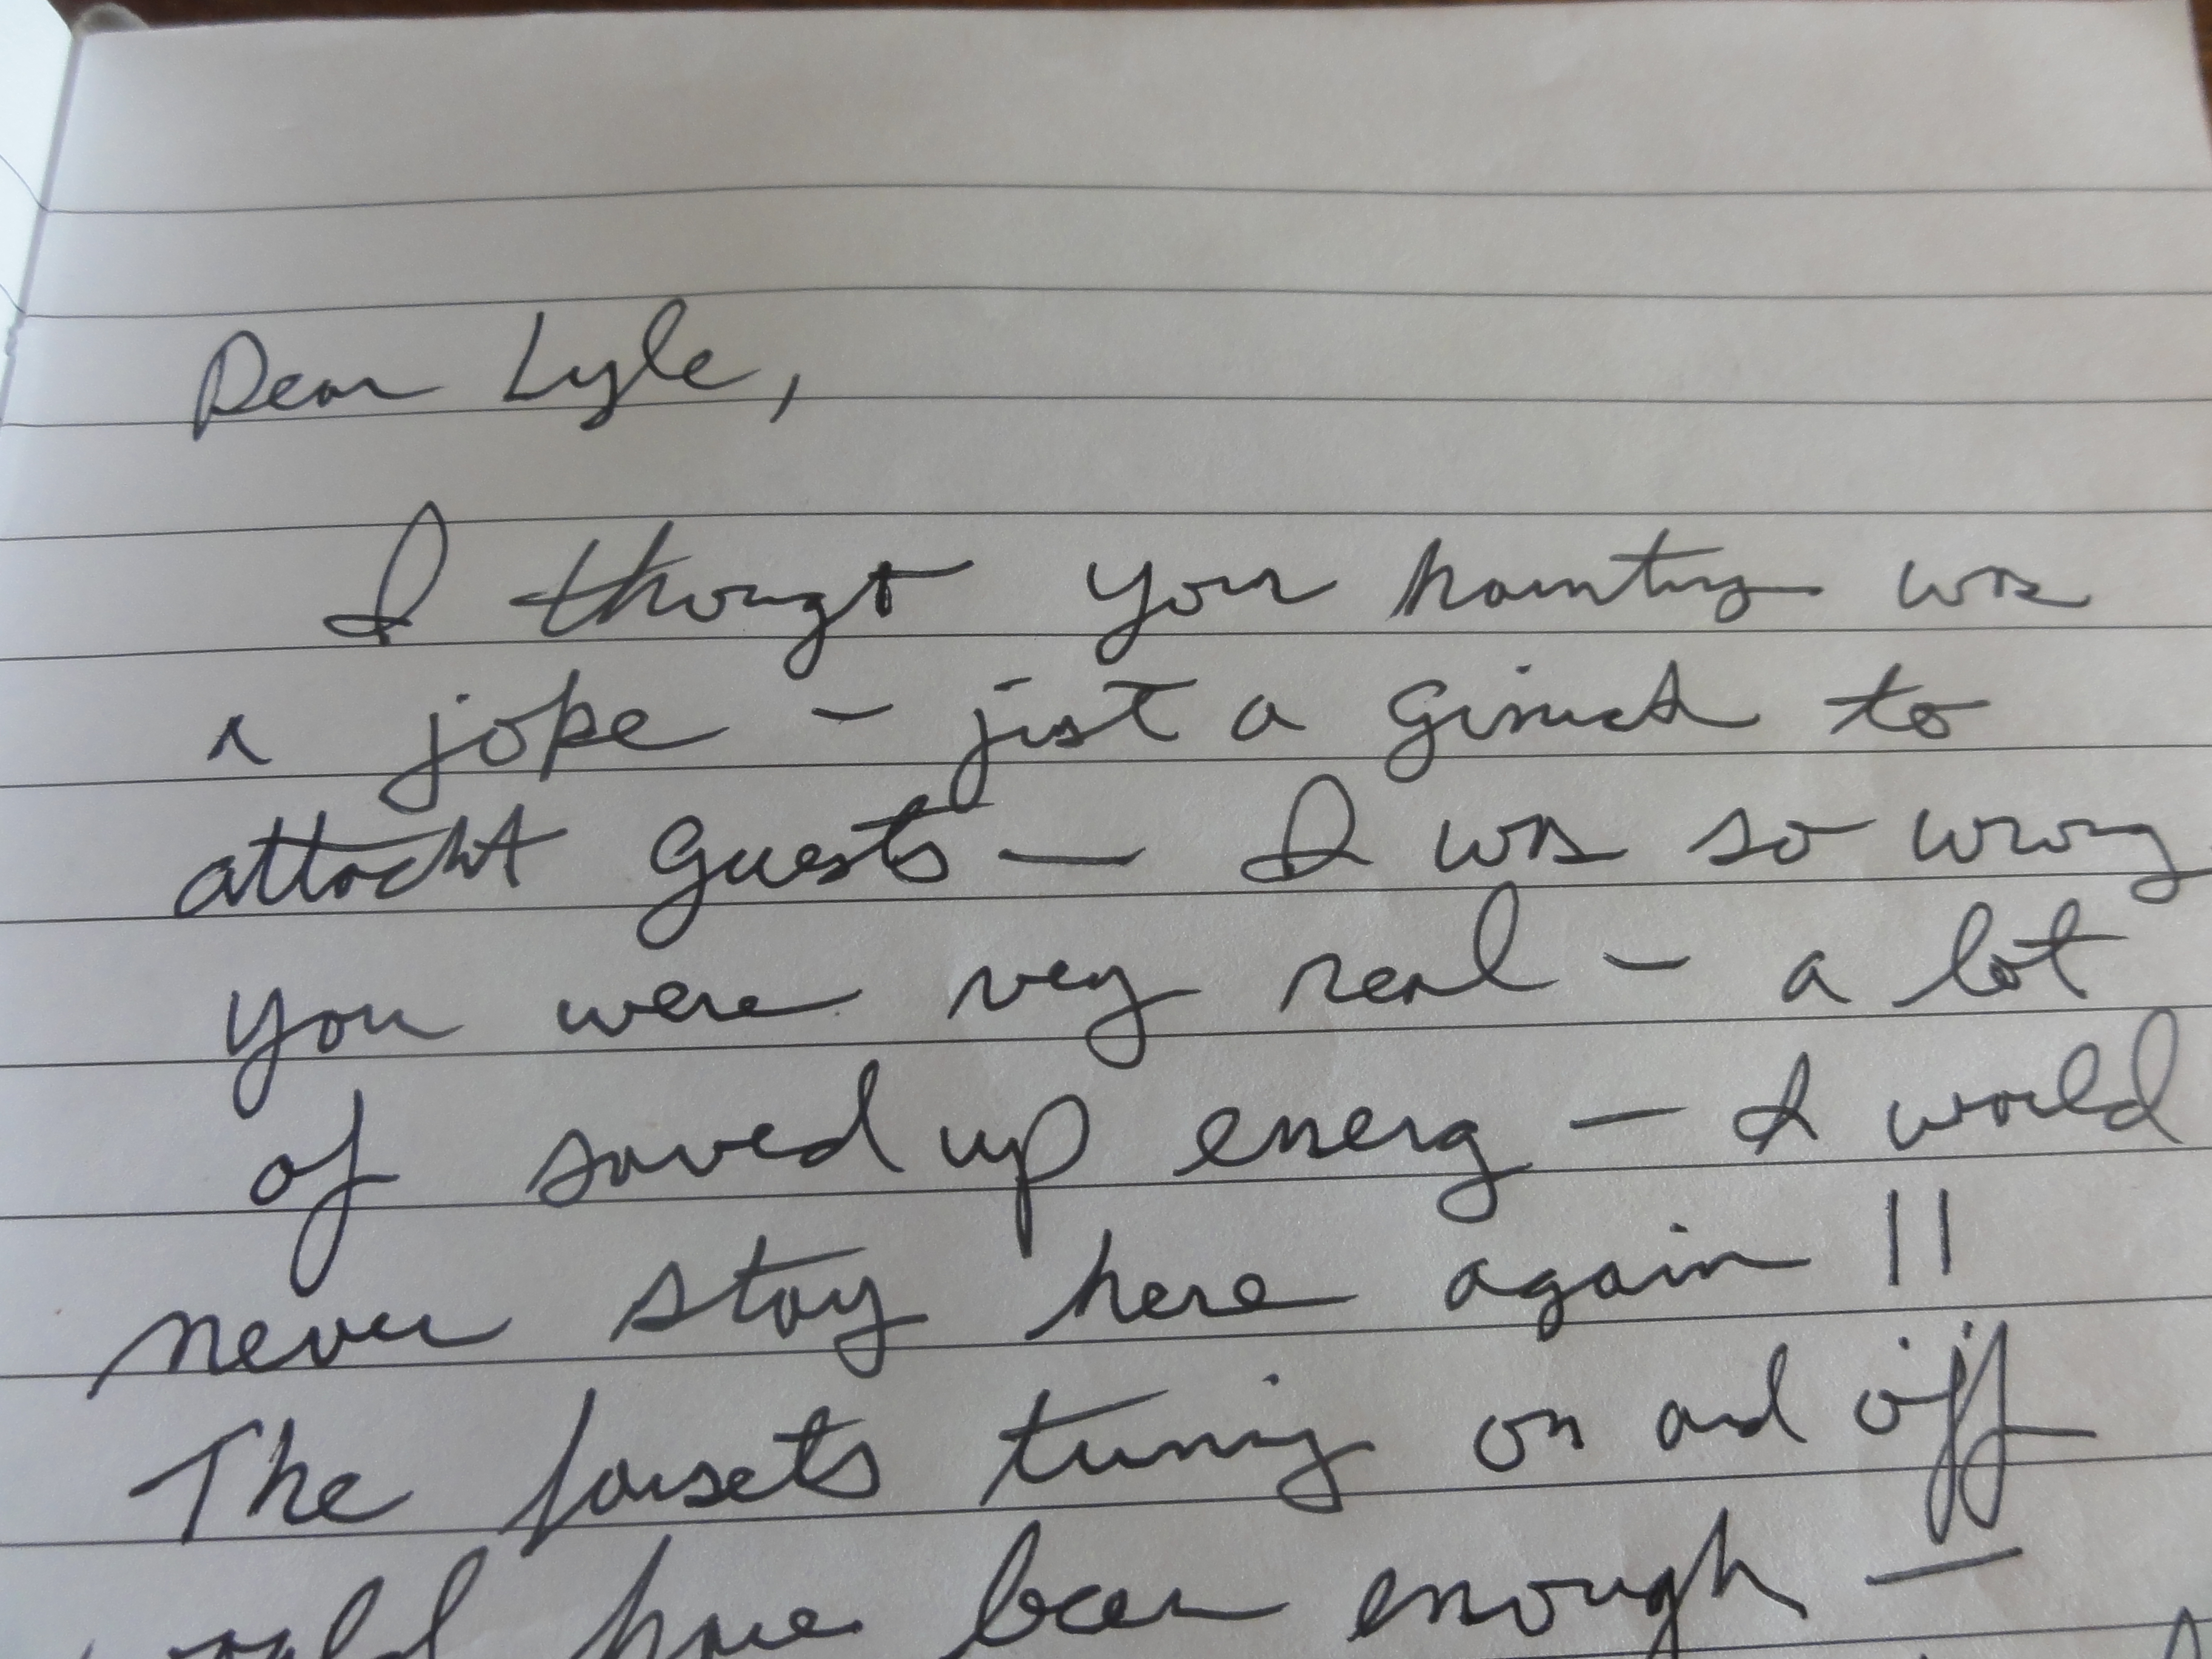 Dear Lyle,
I thougt your haunting was
a joke - just a gimick to
attacht guests — I was so wrong
you were very real - a lot
of saved up energ — I would
never stay here again !!
The fausets turning on and off
would have been enough —